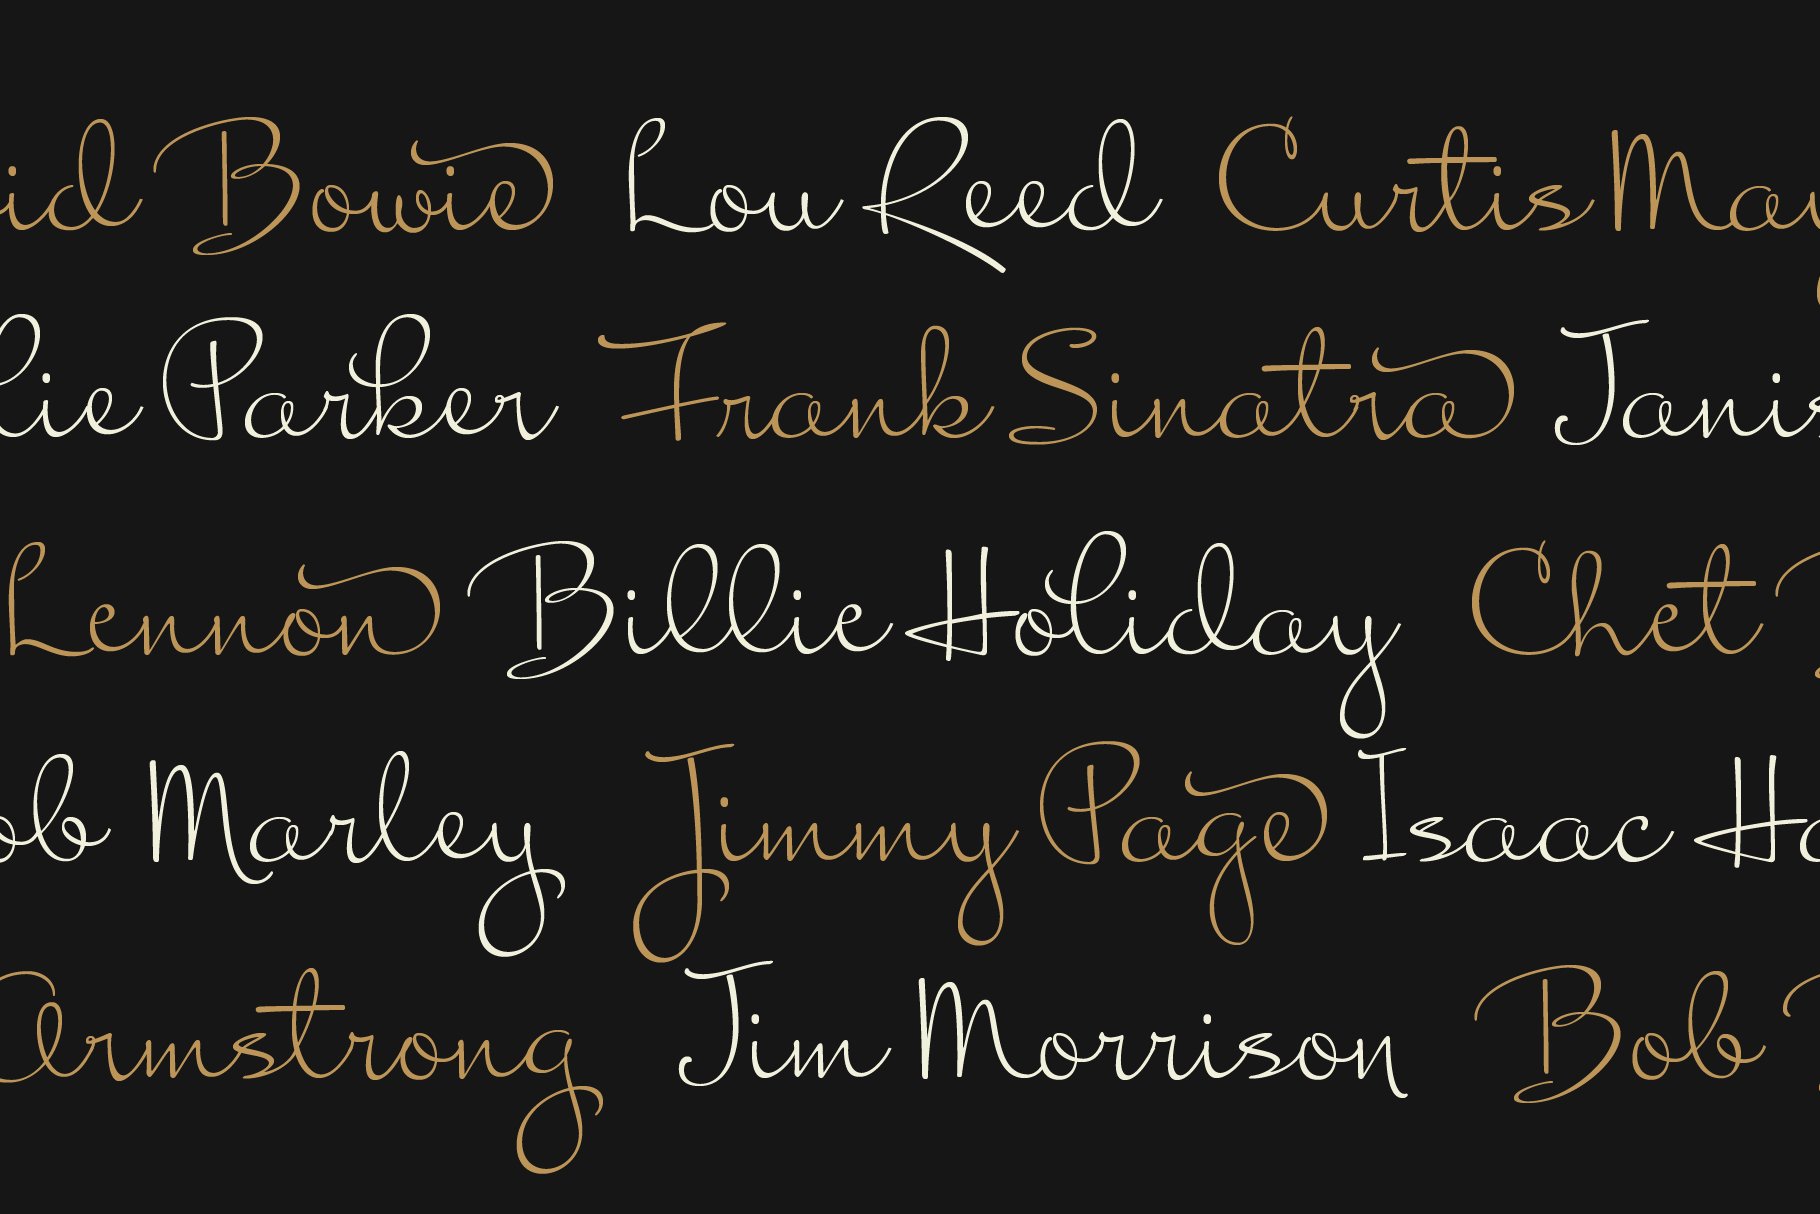 id Bowie Lou Reed Curtis May
lie Parker Frank Sinatra Janis
Lennon Billie Holiday Chet
ob Marley Jimmy Page Isaac Ha
Armstrong Jim Morrison Bob